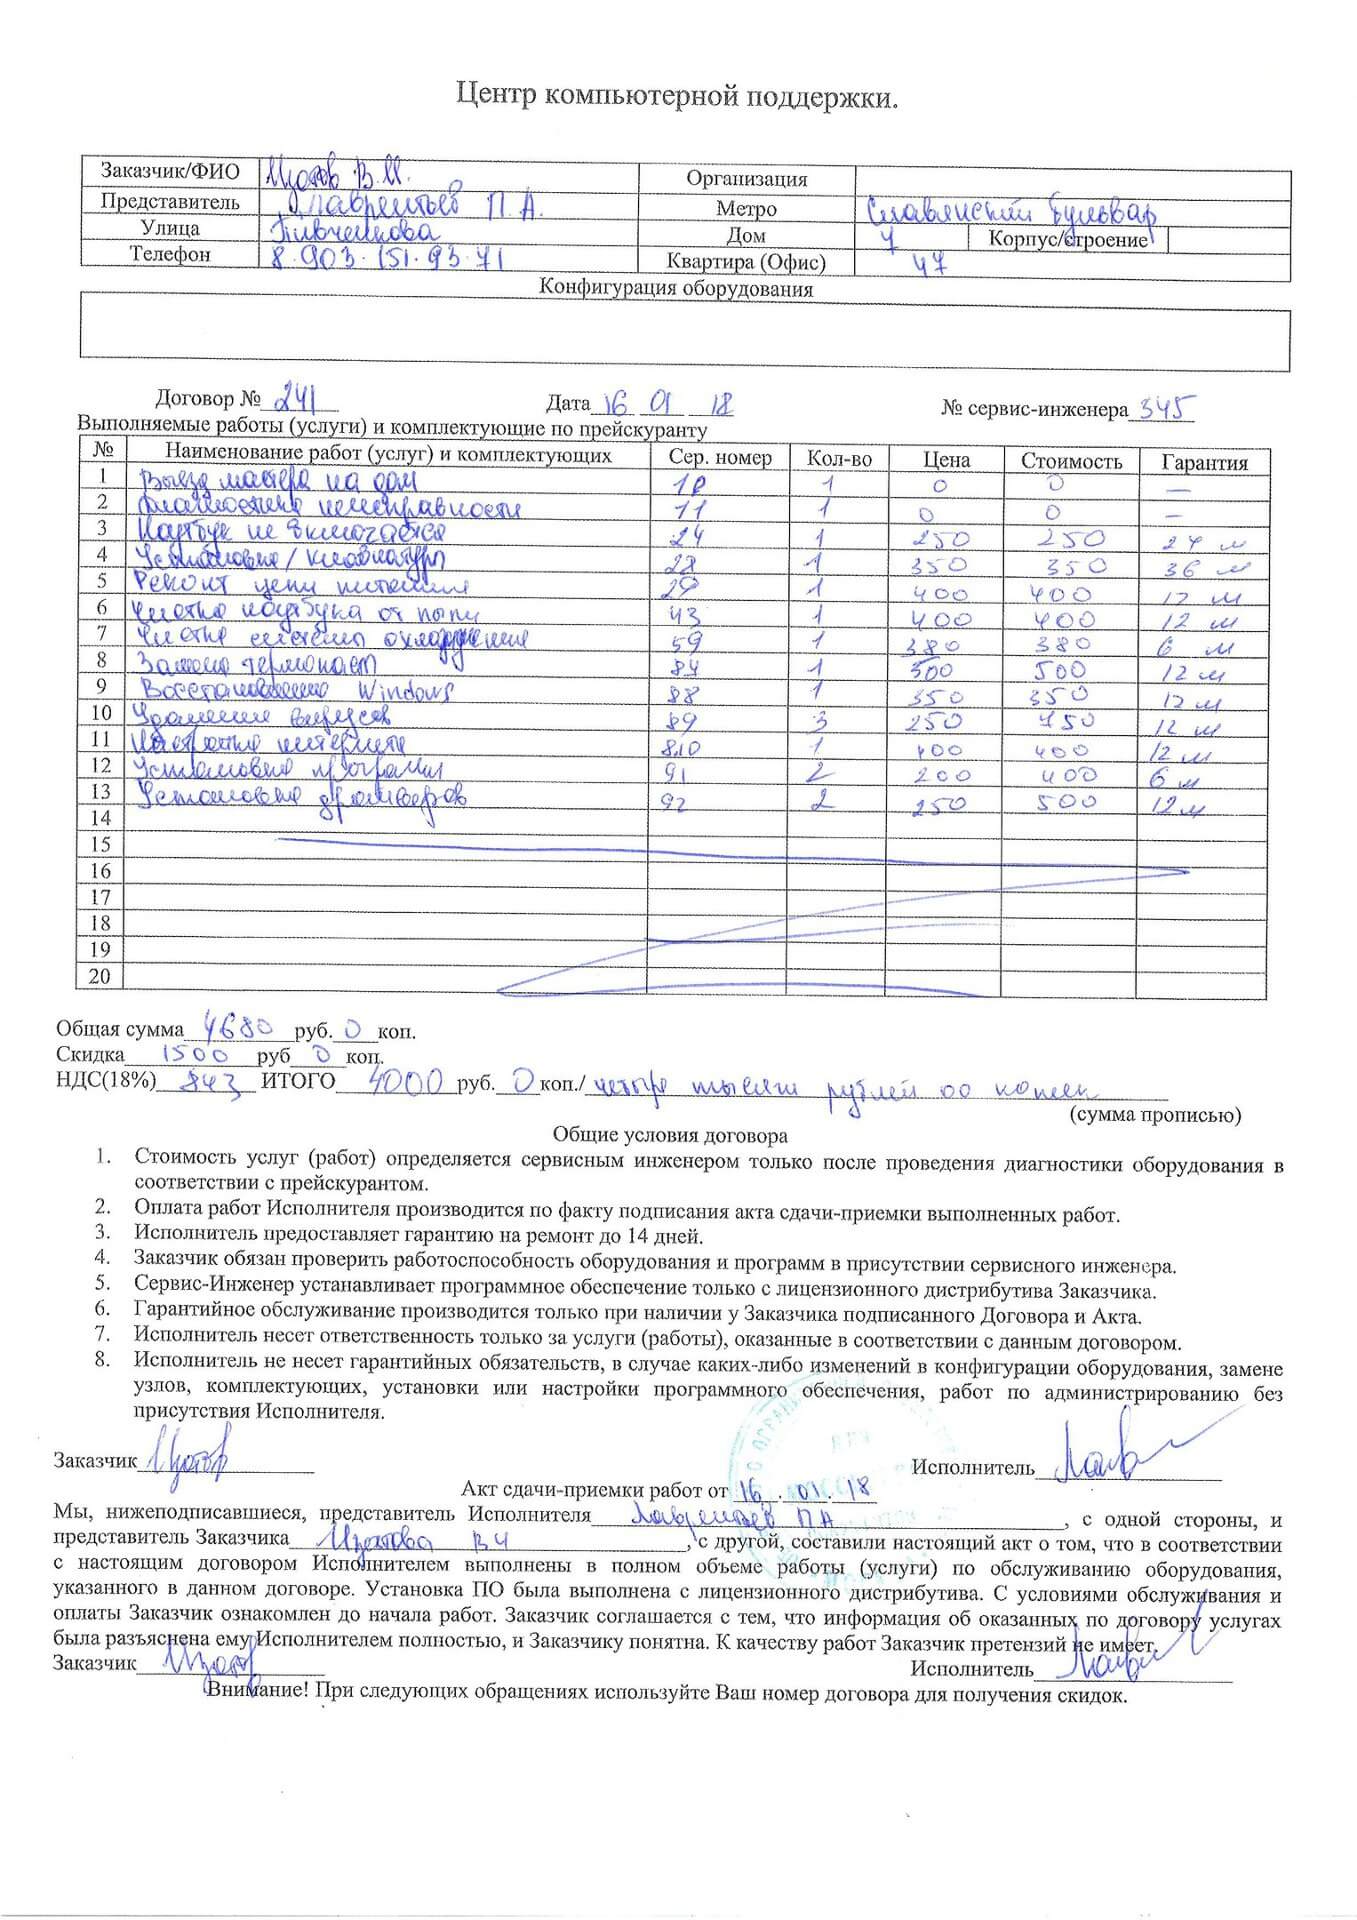 Центр компьютерной поддержки.
Заказчик/ФИО Изотов В.И. Организация
Представитель Лаврентьев П.А. Метро Славянский бульвар
Улица Пивченкова Дом 7 Корпус/строение
Телефон 8.903.151.93.71 Квартира (Офис) 47
Конфигурация оборудования
Договор № 241 Дата 16 01 18 № сервис-инженера 345
Выполняемые работы (услуги) и комплектующие по прейскуранту
№ Наименование работ (услуг) и комплектующих Сер. номер Кол-во Цена Стоимость Гарантия
1 Выезд мастера на дом 10 1 0 0 —
2 Диагностика неисправности 11 1 0 0 —
3 Ноутбук не включается 24 1 250 250 24 м
4 Установка / клавиатуры 28 1 350 350 36 м
5 Ремонт цепи питания 29 1 400 400 12 м
6 Чистка ноутбука от пыли 43 1 400 400 12 м
7 Чистка системы охлаждения 59 1 380 380 6 м
8 Замена термопаст 84 1 500 500 12 м
9 Восстановление Windows 88 1 350 350 12 м
10 Удаление вирусов 89 3 250 450 12 м
11 Настройка интернета 810 1 400 400 12 м
12 Установка программ 91 2 200 400 6 м
13 Установка драйверов 92 2 250 500 12 м
14
15
16
17
18
19
20
Общая сумма 4680 руб. 0 коп.
Скидка 1500 руб 0 коп.
НДС(18%) 843 ИТОГО 4000 руб. 0 коп./ четыре тысячи рублей 00 копеек
(сумма прописью)
Общие условия договора
1. Стоимость услуг (работ) определяется сервисным инженером только после проведения диагностики оборудования в
соответствии с прейскурантом.
2. Оплата работ Исполнителя производится по факту подписания акта сдачи-приемки выполненных работ.
3. Исполнитель предоставляет гарантию на ремонт до 14 дней.
4. Заказчик обязан проверить работоспособность оборудования и программ в присутствии сервисного инженера.
5. Сервис-Инженер устанавливает программное обеспечение только с лицензионного дистрибутива Заказчика.
6. Гарантийное обслуживание производится только при наличии у Заказчика подписанного Договора и Акта.
7. Исполнитель несет ответственность только за услуги (работы), оказанные в соответствии с данным договором.
8. Исполнитель не несет гарантийных обязательств, в случае каких-либо изменений в конфигурации оборудования, замене
узлов, комплектующих, установки или настройки программного обеспечения, работ по администрированию без
присутствия Исполнителя.
Заказчик Изотов Исполнитель Лав
Акт сдачи-приемки работ от 16 . 01 . 18
Мы, нижеподписавшиеся, представитель Исполнителя Лаврентьев П А , с одной стороны, и
представитель Заказчика Изотова В И , с другой, составили настоящий акт о том, что в соответствии
с настоящим договором Исполнителем выполнены в полном объеме работы (услуги) по обслуживанию оборудования,
указанного в данном договоре. Установка ПО была выполнена с лицензионного дистрибутива. С условиями обслуживания и
оплаты Заказчик ознакомлен до начала работ. Заказчик соглашается с тем, что информация об оказанных по договору услугах
была разъяснена ему Исполнителем полностью, и Заказчику понятна. К качеству работ Заказчик претензий не имеет.
Заказчик Изотов Исполнитель Лав
Внимание! При следующих обращениях используйте Ваш номер договора для получения скидок.